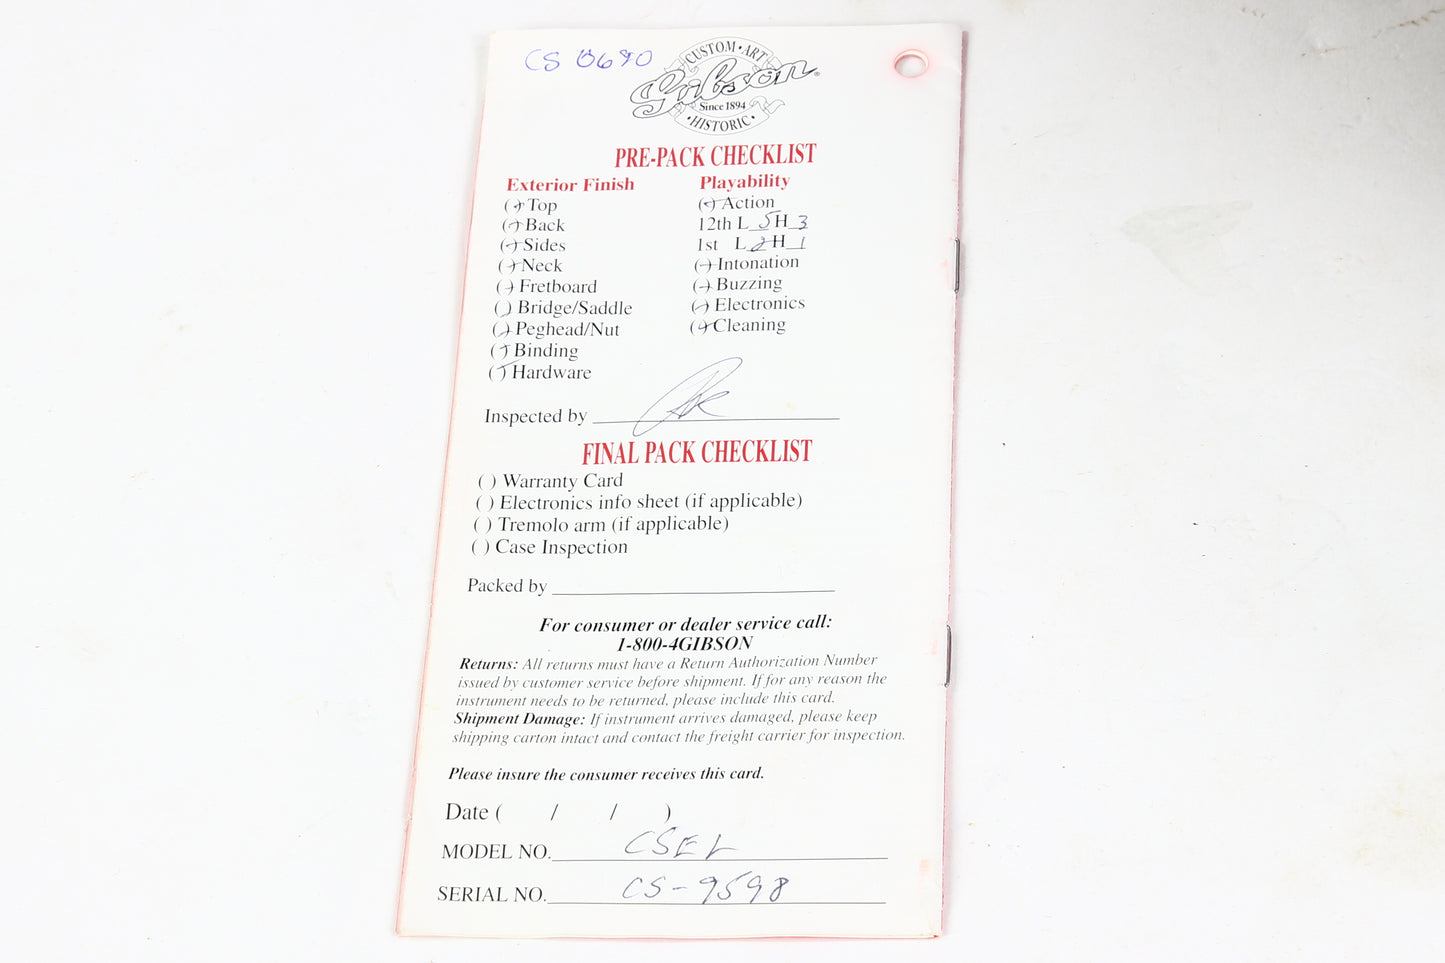 CS 0690
CUSTOM • ART
Gibson ®
Since 1894
• HISTORIC •
PRE-PACK CHECKLIST
Exterior Finish
( ) Top
( ) Back
( ) Sides
( ) Neck
( ) Fretboard
( ) Bridge/Saddle
( ) Peghead/Nut
( ) Binding
( ) Hardware
Playability
( ) Action
12th L 5 H 3
1st L 2 H 1
( ) Intonation
( ) Buzzing
( ) Electronics
( ) Cleaning
Inspected by
FINAL PACK CHECKLIST
( ) Warranty Card
( ) Electronics info sheet (if applicable)
( ) Tremolo arm (if applicable)
( ) Case Inspection
Packed by
For consumer or dealer service call:
1-800-4GIBSON
Returns: All returns must have a Return Authorization Number
issued by customer service before shipment. If for any reason the
instrument needs to be returned, please include this card.
Shipment Damage: If instrument arrives damaged, please keep
shipping carton intact and contact the freight carrier for inspection.
Please insure the consumer receives this card.
Date ( / / )
MODEL NO. CSEL
SERIAL NO. CS-9598